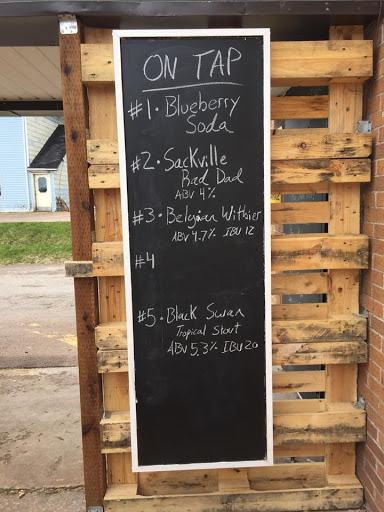 ON TAP
#1 • Blueberry
Soda
#2 • Sackville
Bad Dad
ABV 4%
#3 • Belgian Witbier
ABV 4.7% IBU 12
#4
#5 • Black Swan
Tropical Stout
ABV 5.3% IBU 20